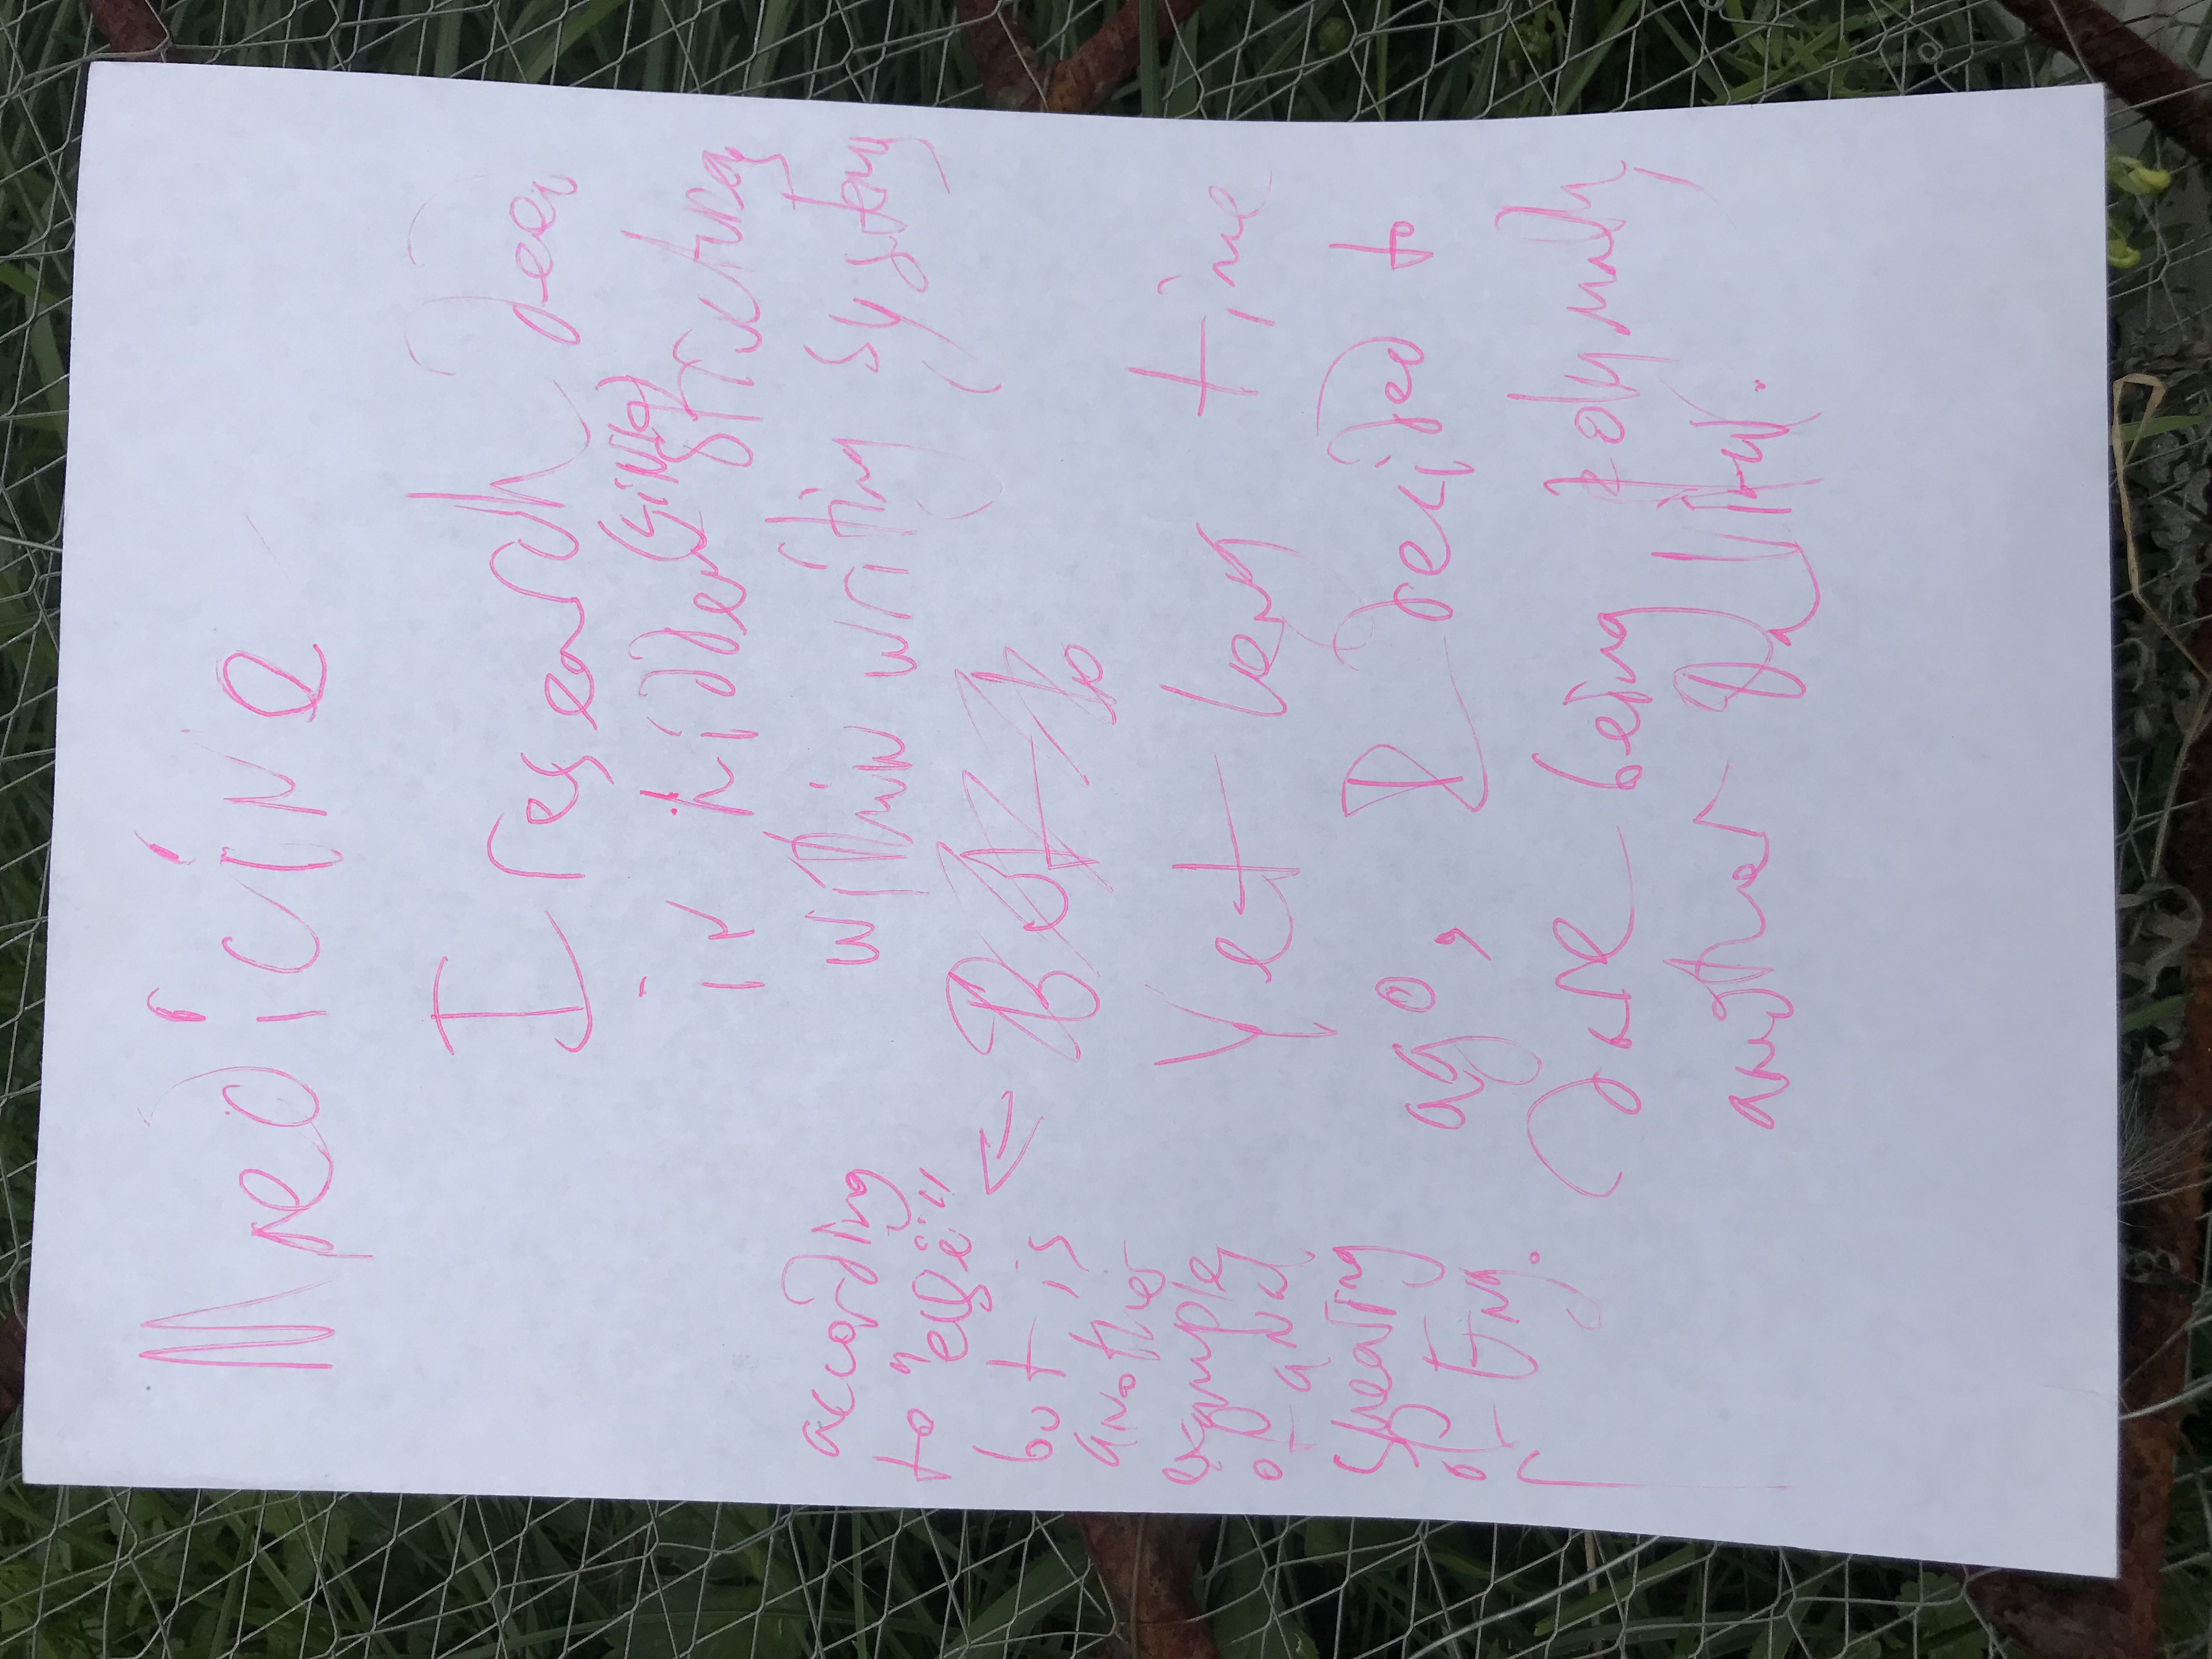 Medicine
I research deep
in hidden (single) structures
within writing systems
But to
Yet long time
ago, I decided to
dare being polymath,
another Da Vinci.
according
to "ещё"
but is
another
example
of anal
smearing
of Eng.